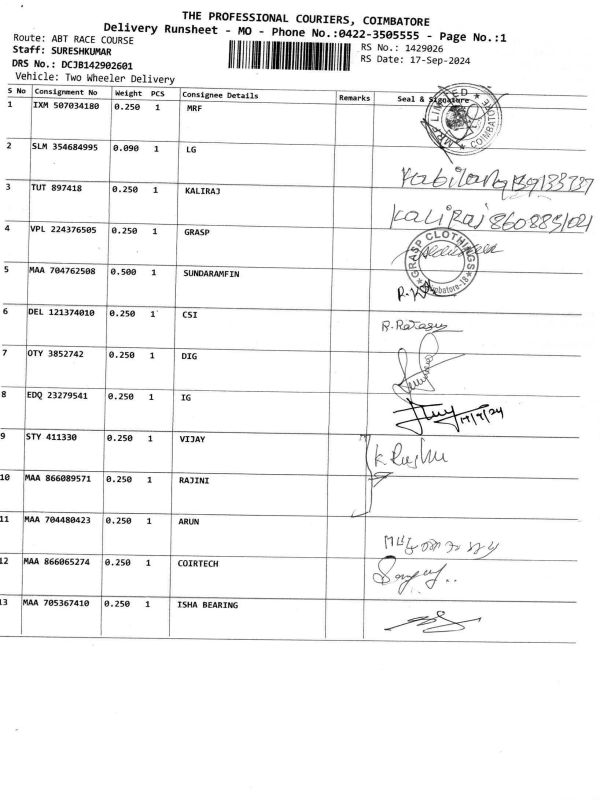 THE PROFESSIONAL COURIERS, COIMBATORE
Delivery Runsheet - MO - Phone No.:0422-3505555 - Page No.:1
Route: ABT RACE COURSE
RS No.: 1429026
Staff: SURESHKUMAR
RS Date: 17-Sep-2024
DRS No.: DCJB142902601
Vehicle: Two Wheeler Delivery
S No Consignment No Weight PCS Consignee Details Remarks Seal & Signature
1 IXM 507034180 0.250 1 MRF
MRF LIMITED ★ COIMBATORE
2 SLM 354684995 0.090 1 LG
3 TUT 897418 0.250 1 KALIRAJ
Kaliraj
4 VPL 224376505 0.250 1 GRASP
★ GRASP CLOTHINGS ★ Coimbatore-18
5 MAA 704762508 0.500 1 SUNDARAMFIN
6 DEL 121374010 0.250 1 CSI
7 OTY 3852742 0.250 1 DIG
8 EDQ 23279541 0.250 1 IG
17/9/24
9 STY 411330 0.250 1 VIJAY
10 MAA 866089571 0.250 1 RAJINI
11 MAA 704480423 0.250 1 ARUN
12 MAA 866065274 0.250 1 COIRTECH
13 MAA 705367410 0.250 1 ISHA BEARING